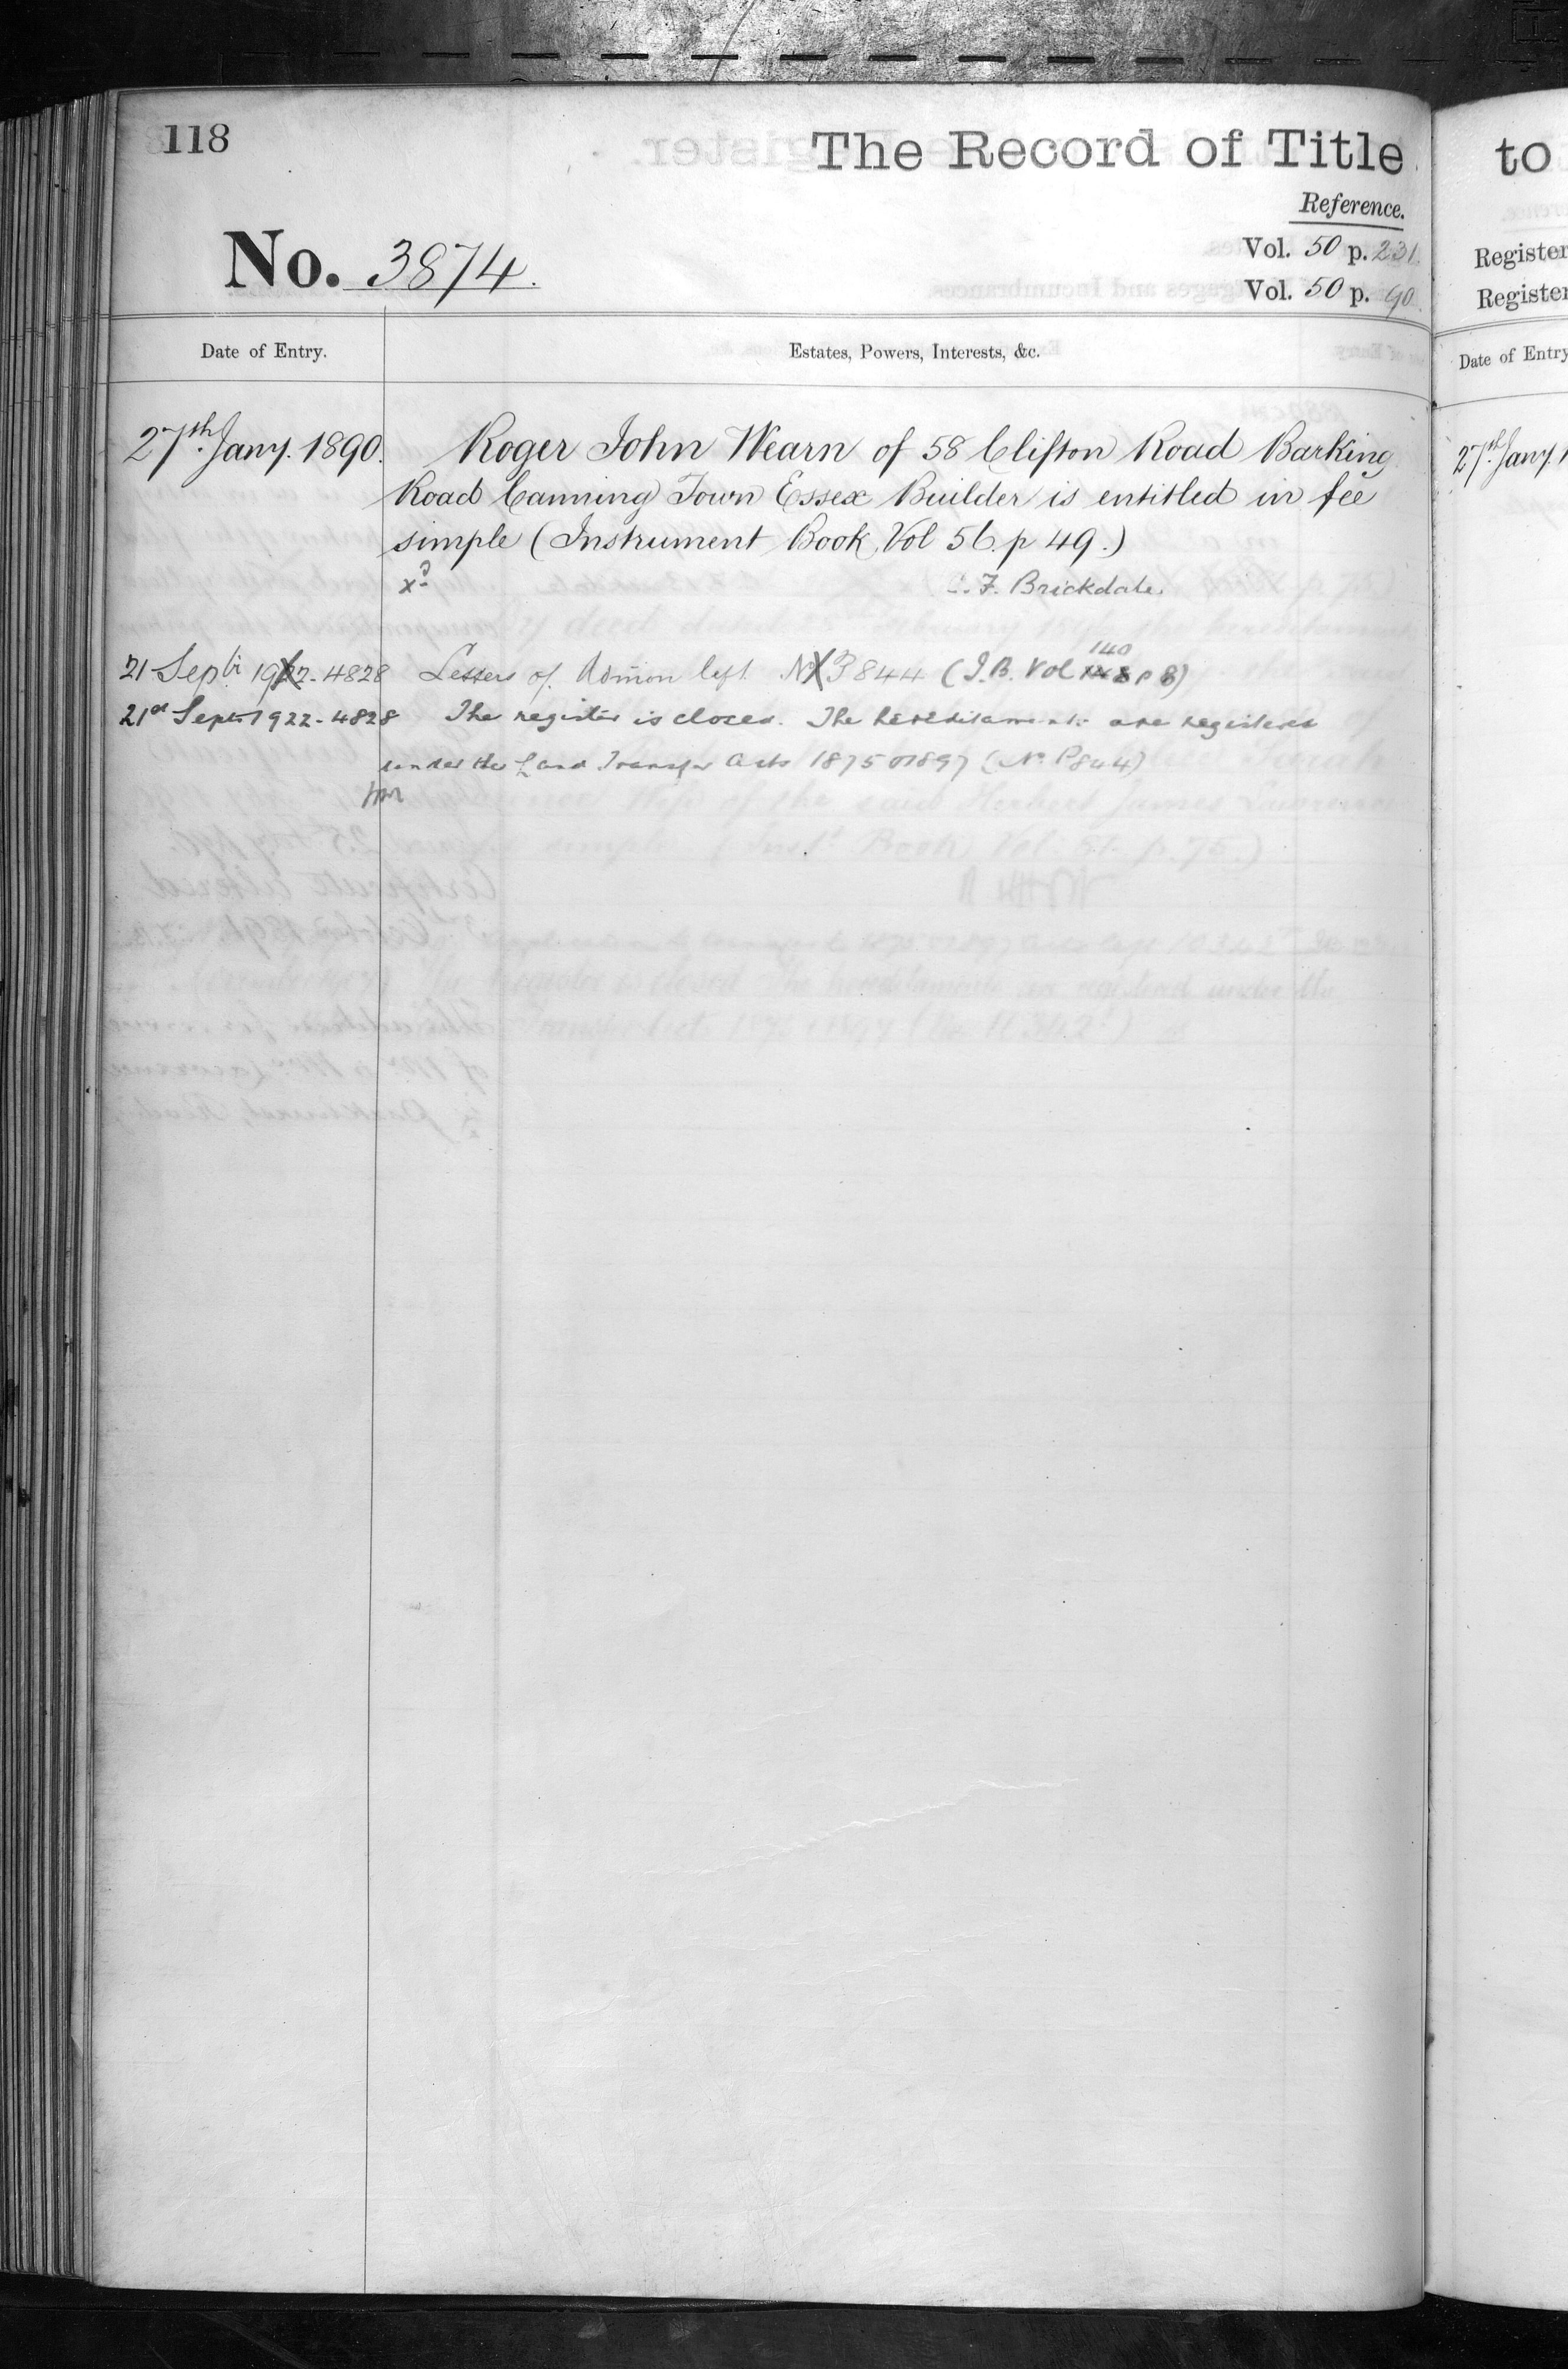 118
The Record of Title
Reference.
No. 3874.
Vol. 50 p. 231.
Vol. 50 p. 90.
Date of Entry.
Estates, Powers, Interests, &c.
27th Jany. 1890.
Roger John Wearn of 58 Clifton Road Barking
Road Canning Town Essex Builder is entitled in fee
simple (Instrument Book Vol 56. p 49.)
xd
C. F. Brickdale
21 Sepbr 1922 - 4828
Letters of Admon left No P844 (I.B. Vol 140 p 8)
21st Sept 1922 - 4828
The register is closed. The hereditaments are registered
under the Land Transfer Acts 1875 & 1897 (No P844)
to
Register
Register
Date of Entry
27th Jany. 1